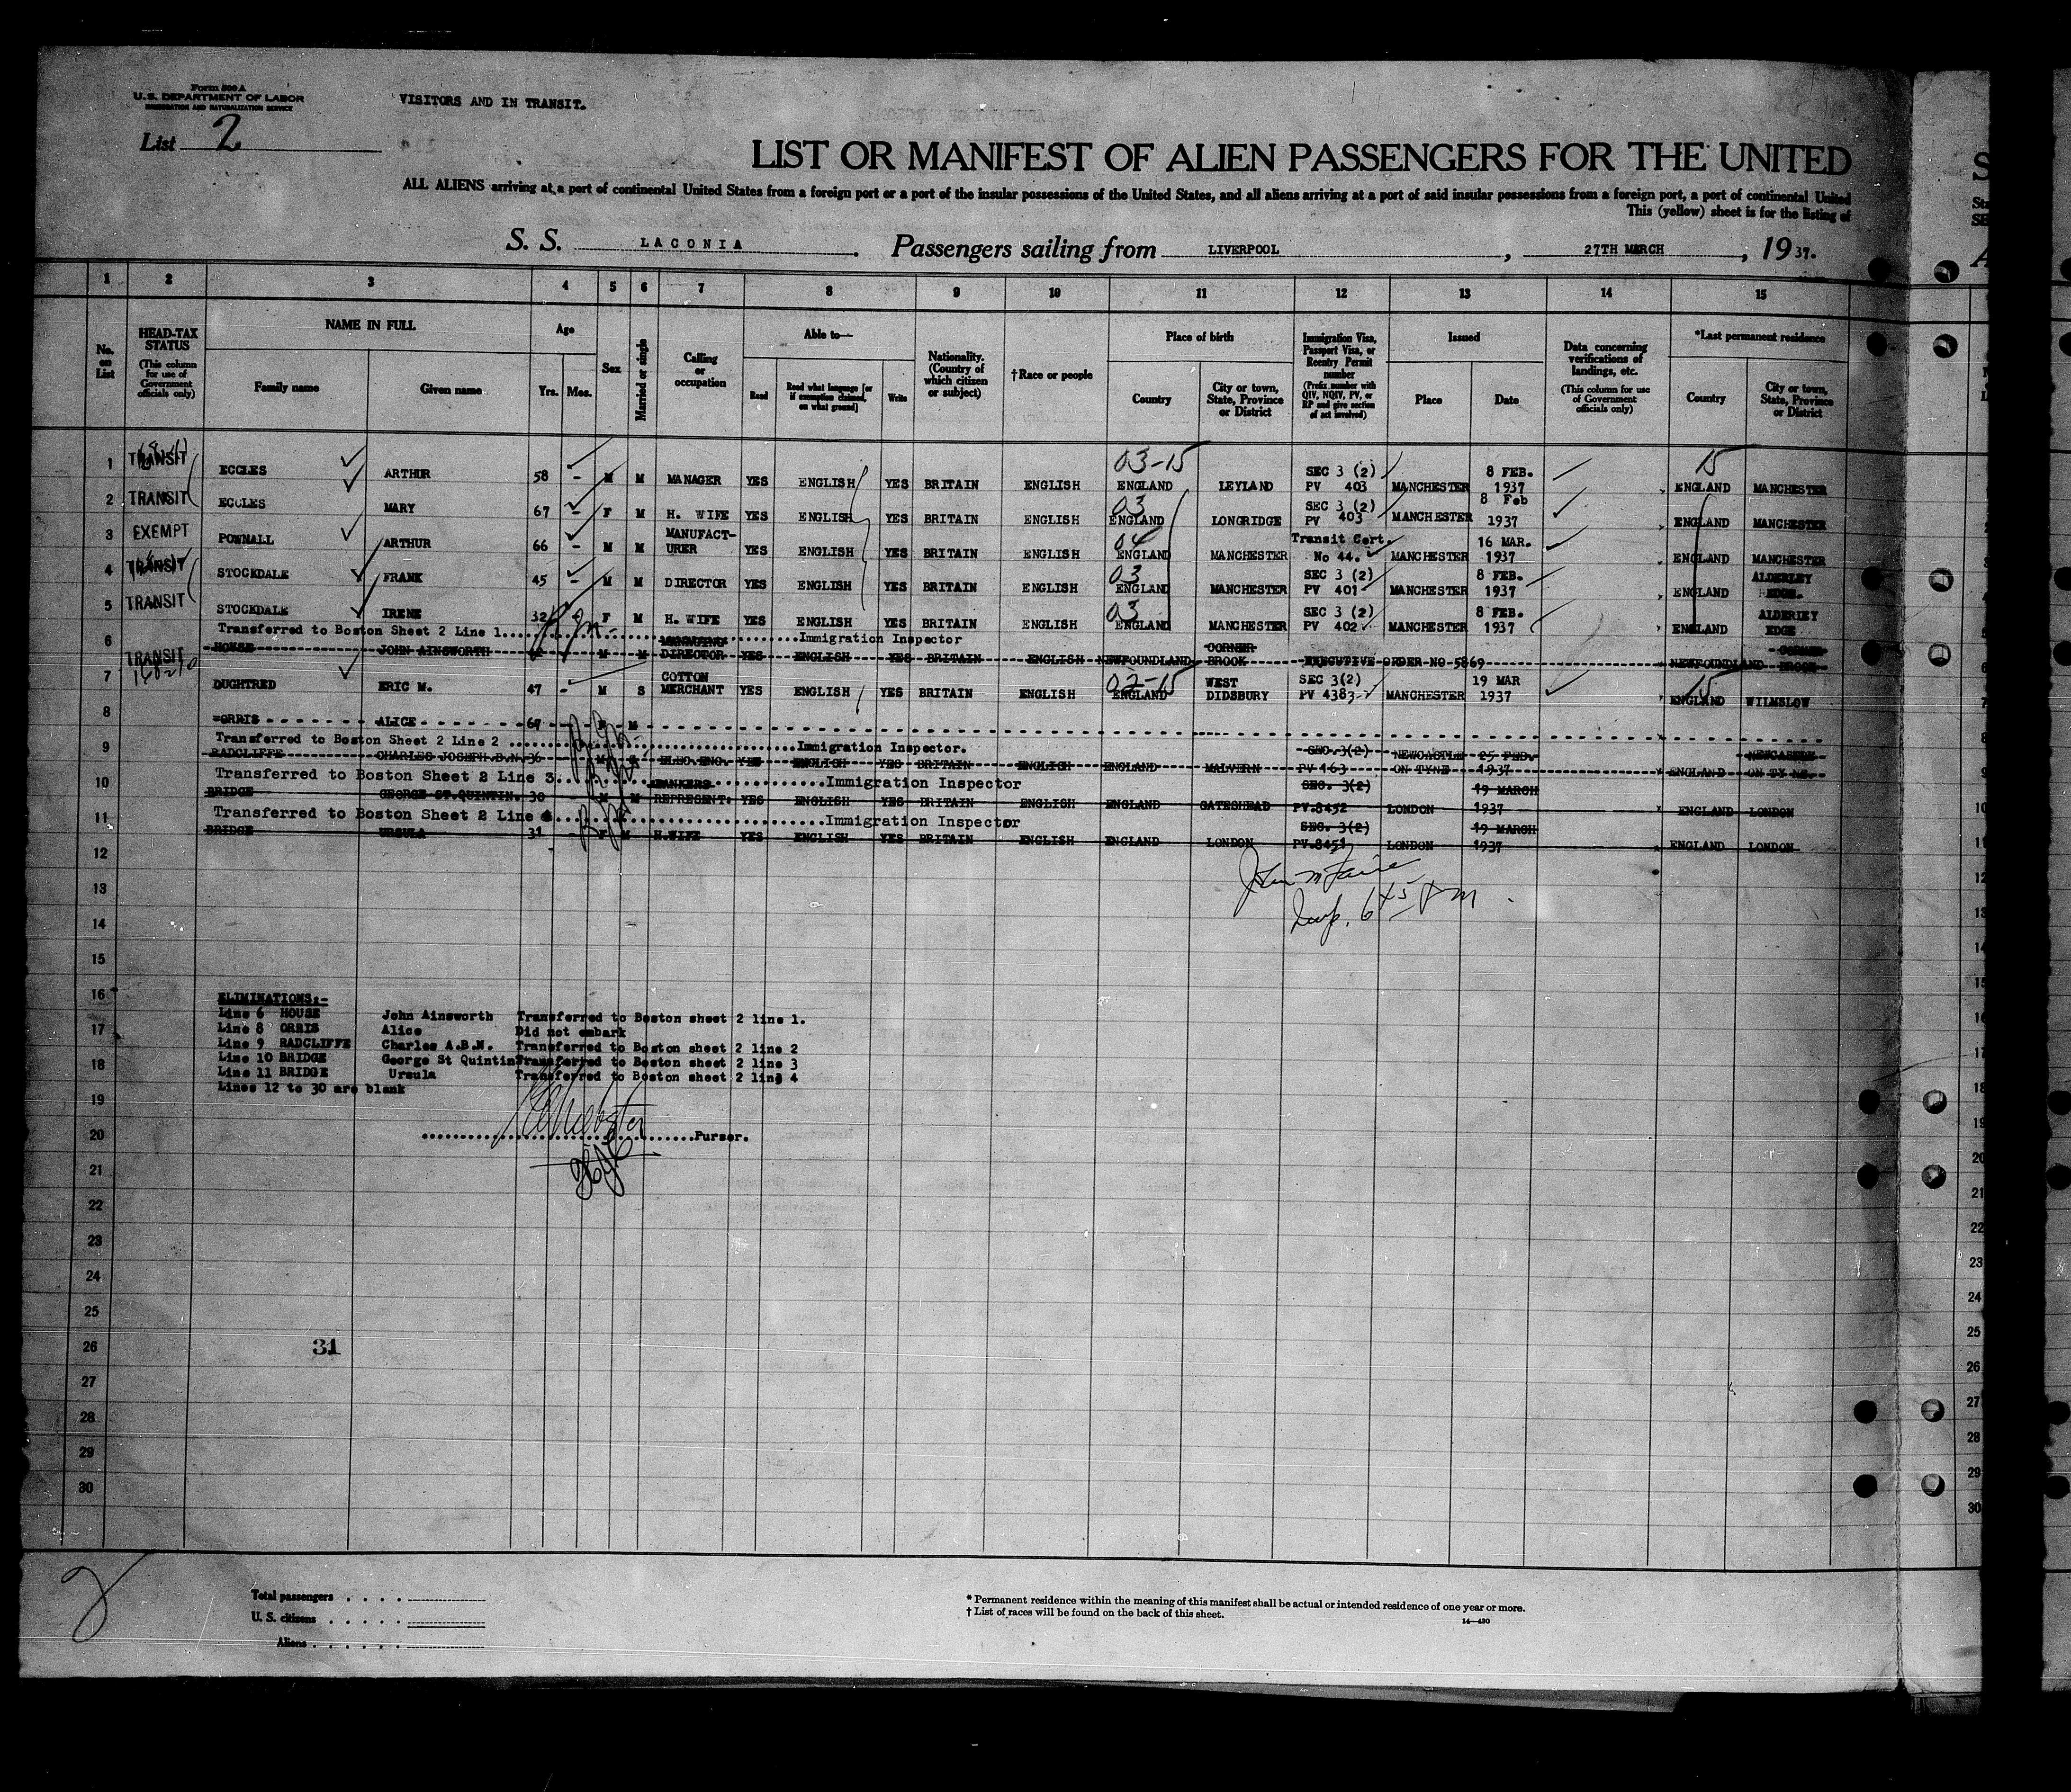 Form 500 A
U.S. DEPARTMENT OF LABOR
IMMIGRATION AND NATURALIZATION SERVICE
VISITORS AND IN TRANSIT.
List 2
LIST OR MANIFEST OF ALIEN PASSENGERS FOR THE UNITED
ALL ALIENS arriving at a port of continental United States from a foreign port or a port of the insular possessions of the United States, and all aliens arriving at a port of said insular possessions from a foreign port, a port of continental United
This (yellow) sheet is for the listing of
S. S. LACONIA. Passengers sailing from LIVERPOOL, 27TH MARCH, 1937.
1 2 3 4 5 6 7 8 9 10 11 12 13 14 15
No. on List
HEAD-TAX STATUS (This column for use of Government officials only)
NAME IN FULL Family name Given name
Age Yrs. Mos.
Sex
Married or single
Calling or occupation
Able to— Read Read what language [or if exemption claimed, on what ground] Write
Nationality. (Country of which citizen or subject)
†Race or people
Place of birth Country City or town, State, Province or District
Immigration Visa, Passport Visa, or Reentry Permit number (Prefix number with QIV, NQIV, PV, or RP and give section of act involved)
Issued Place Date
Data concerning verifications of landings, etc. (This column for use of Government officials only)
*Last permanent residence Country City or town, State, Province or District
1 TRANSIT ECCLES ARTHUR 58 - M M MANAGER YES ENGLISH YES BRITAIN ENGLISH 03-15 ENGLAND LEYLAND SEC 3 (2) PV 403 MANCHESTER 8 FEB. 1937 15 ENGLAND MANCHESTER
2 TRANSIT ECCLES MARY 67 - F M H. WIFE YES ENGLISH YES BRITAIN ENGLISH 03 ENGLAND LONGRIDGE SEC 3 (2) PV 403 MANCHESTER 8 Feb 1937 ENGLAND MANCHESTER
3 EXEMPT POWNALL ARTHUR 66 - M M MANUFACT-URER YES ENGLISH YES BRITAIN ENGLISH 04 ENGLAND MANCHESTER Transit Cert. No 44. MANCHESTER 16 MAR. 1937 ENGLAND MANCHESTER
4 TRANSIT STOCKDALE FRANK 45 - M M DIRECTOR YES ENGLISH YES BRITAIN ENGLISH 03 ENGLAND MANCHESTER SEC 3 (2) PV 401 MANCHESTER 8 FEB. 1937 ENGLAND ALDERLEY EDGE.
5 TRANSIT STOCKDALE IRENE 32 F M H. WIFE YES ENGLISH YES BRITAIN ENGLISH 03 ENGLAND MANCHESTER SEC 3 (2) PV 402 MANCHESTER 8 FEB. 1937 ENGLAND ALDERLEY EDGE
Transferred to Boston Sheet 2 Line 1..........Immigration Inspector
6 HOUSE JOHN AINSWORTH M M MANAGING DIRECTOR YES ENGLISH YES BRITAIN ENGLISH NEWFOUNDLAND CORNER BROOK EXECUTIVE ORDER NO 5869 NEWFOUNDLAND CORNER BROOK
7 TRANSIT DUGHTRED ERIC M. 47 - M S COTTON MERCHANT YES ENGLISH YES BRITAIN ENGLISH 02-15 ENGLAND WEST DIDSBURY SEC 3(2) PV 4383 MANCHESTER 19 MAR 1937 15 ENGLAND WILMSLOW
8 ORRIS ALICE 67 M
Transferred to Boston Sheet 2 Line 2 ..........Immigration Inspector.
9 RADCLIFFE CHARLES JOSEPH.B.N. 36 M ELEC.ENG. YES ENGLISH YES BRITAIN ENGLISH ENGLAND MALVERN SEC.3(2) PV 163 NEWCASTLE ON TYNE 25 FEB. 1937 ENGLAND NEWCASTLE ON TYNE.
Transferred to Boston Sheet 2 Line 3..........Immigration Inspector
10 BRIDGE GEORGE ST.QUINTIN. 30 M M BANKERS REPRESENT. YES ENGLISH YES BRITAIN ENGLISH ENGLAND GATESHEAD SEC. 3(2) PV.8452 LONDON 19 MARCH 1937 ENGLAND LONDON
Transferred to Boston Sheet 2 Line 4..........Immigration Inspector
11 BRIDGE URSULA 31 F M H.WIFE YES ENGLISH YES BRITAIN ENGLISH ENGLAND LONDON SEC. 3(2) PV.8451 LONDON 19 MARCH 1937 ENGLAND LONDON
12
13
Insp. 6 45 PM
14
15
16
ELIMINATIONS:-
Line 6 HOUSE John Ainsworth Transferred to Boston sheet 2 line 1.
17
Line 8 ORRIS Alice Did not embark
Line 9 RADCLIFFE Charles A.B.N. Transferred to Boston sheet 2 line 2
18
Line 10 BRIDGE George St Quintin Transferred to Boston sheet 2 line 3
Line 11 BRIDGE Ursula Transferred to Boston sheet 2 line 4
Lines 12 to 30 are blank
19
20 ..........Purser.
21
22
23
24
25
26 31
27
28
29
30
2
Total passengers
U. S. citizens
Aliens
* Permanent residence within the meaning of this manifest shall be actual or intended residence of one year or more.
† List of races will be found on the back of this sheet.
14—430